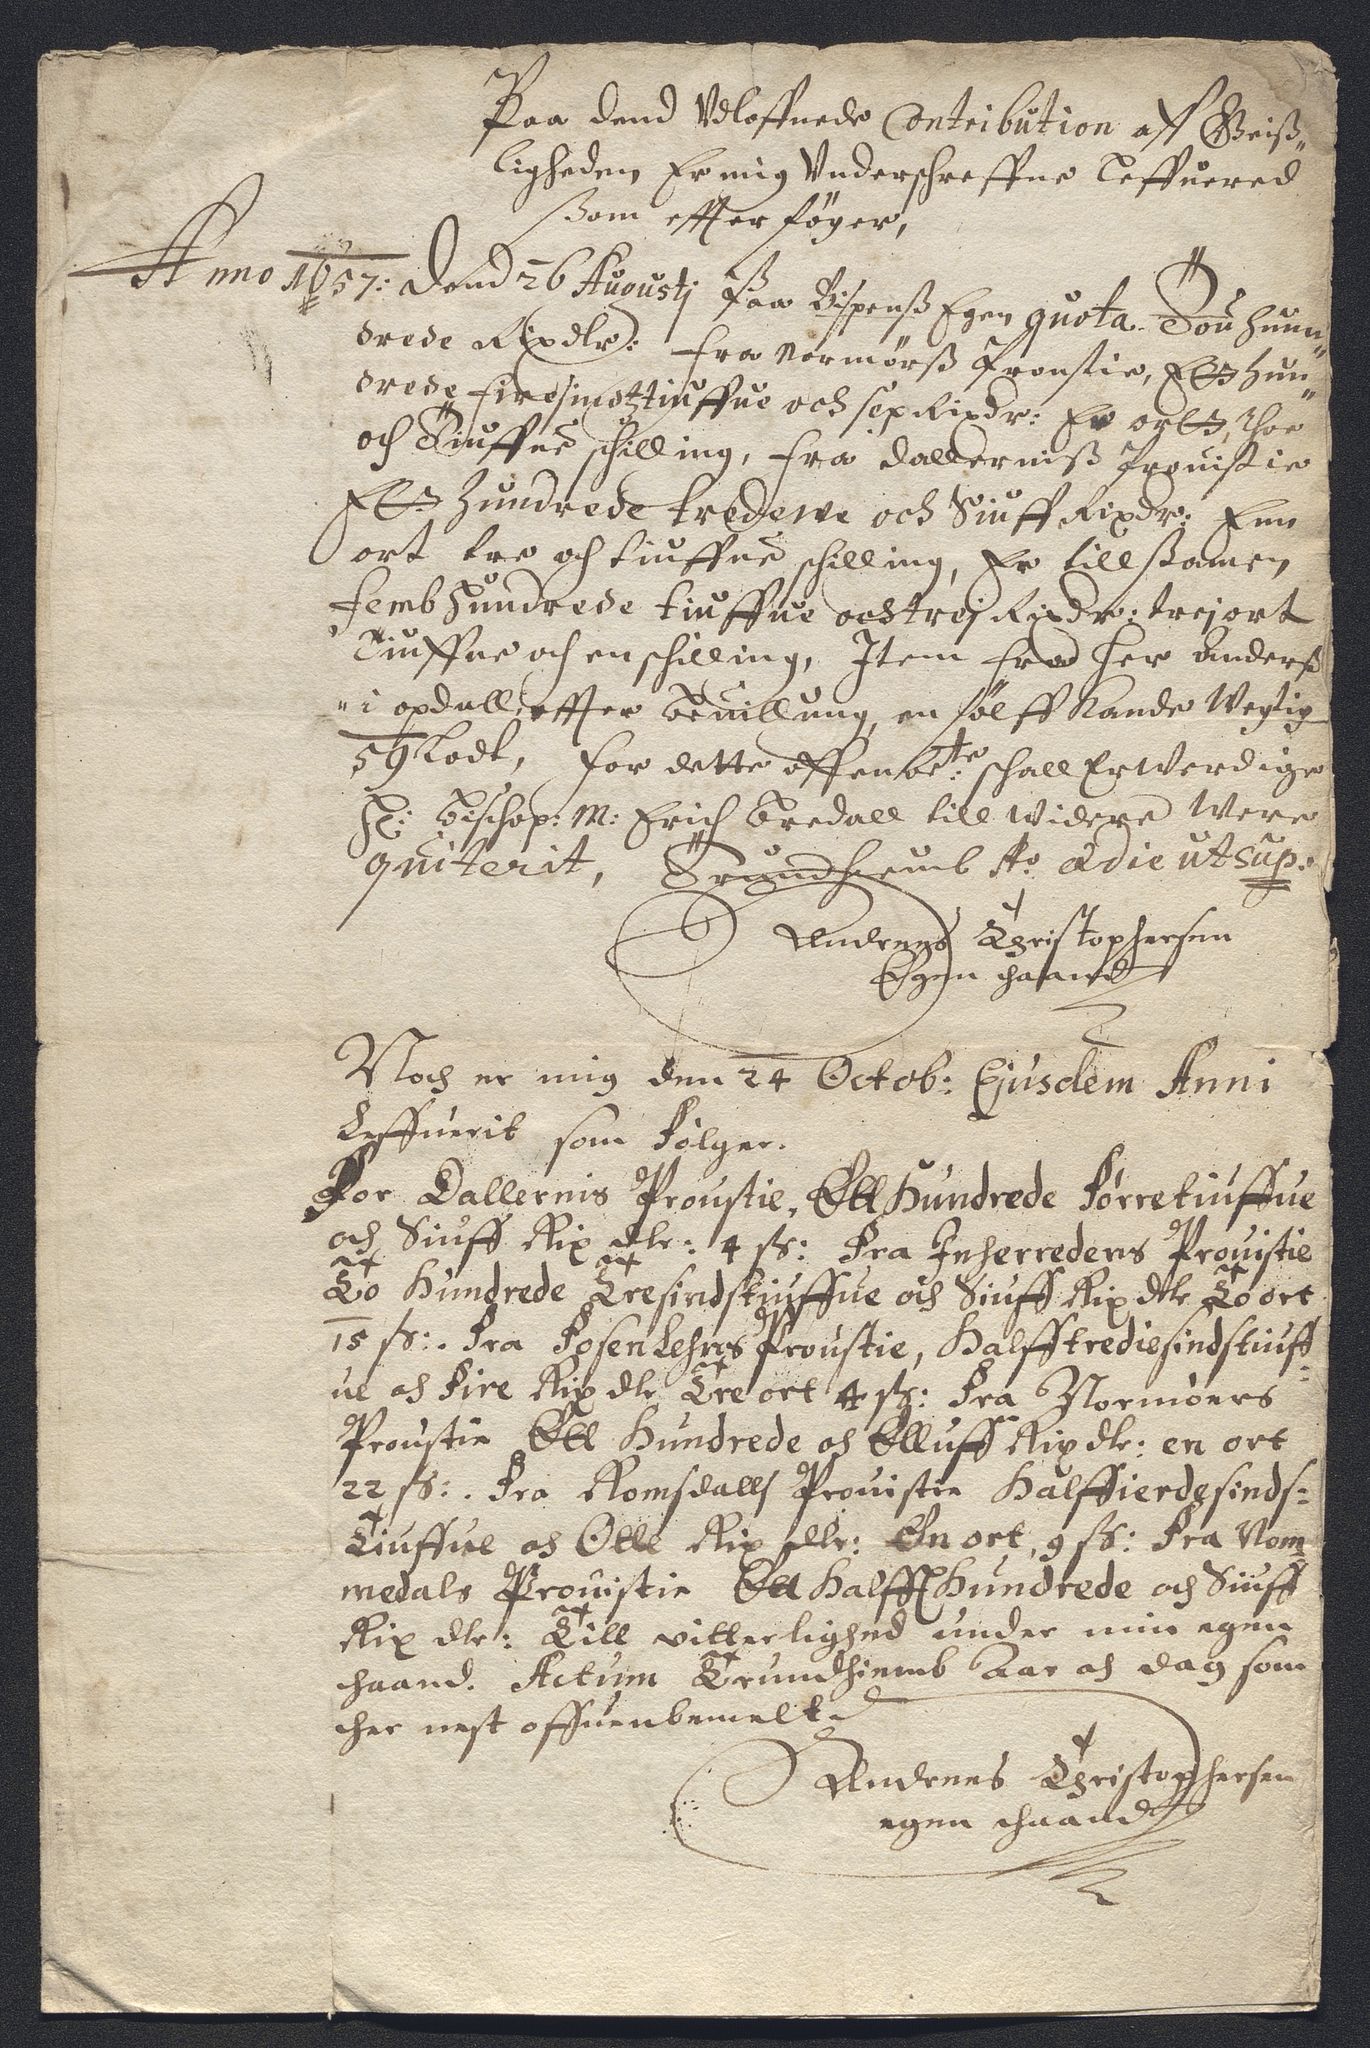 Paa dend Udloffuede Contribution aff Geiß„
ligheden Er mig Underschreffne Leffuered
ßom effter føger,
Anno 1657: Dend 26 Augustj Paa Bispenß Egen quota Tou huun„
drede Rixdlr: fra Normørß Proustie, Ett hun„
drede firesinotztiuffue och sex Rixdr: Er ortt, thoe
och Tiuffue schilling, fra Dallerniß Prouistie
Ett hundrede tredewe och Siuff Rixdr: Enn
ort tre och tiuffue schilling, Er till ßamen
femb hundrede tiuffue och trej Rixdr: trej ort
Tiuffue och en schilling, Item fra Her Anderß
i opdall effter beuillung, en sølff Kande Wegtig
59 Lodt, for dette offenbete: schall ErWerdige
H: Bischop: M: Erich Bredall till widere Were
quiterit, Trundhiemb Ao. & die ut sup:
Andrees Christophersen
Egen haand
Noch er mig den 24 Octob: Ejusdem Anni
Leffuerit som Følger.
For Dallernis Proustie, Ett Hundrede Førretiuffue
och Siuff Rix dlr: 4 ss: Fra Inherredens Prouistie
To Hundrede Tresindstiuffue och Siuff Rix dlr To ort
15 ss:. Fra Fosen Lehns Proustie, Halfftrediesindstiuff„
ue och Fire Rix dlr Tre ort 4 ss: Fra Normøers
Proustie Ett Hundrede och Elluff Rix dlr: en ort
22 ss:. Fra Romsdalls Prouistie Halffierdesinds=
Tiuffue och Otte Rix dlr: En ort, 9 ss: Fra Nom=
medals Prouistie Ett Halfft Hundrede och Siuff
Rix dlr: Till vitterlighed under min egen
haand. Actum Trundhiemb Aar och dag som
her nest offuenbemelt
Andrees Christophersen
egen haand